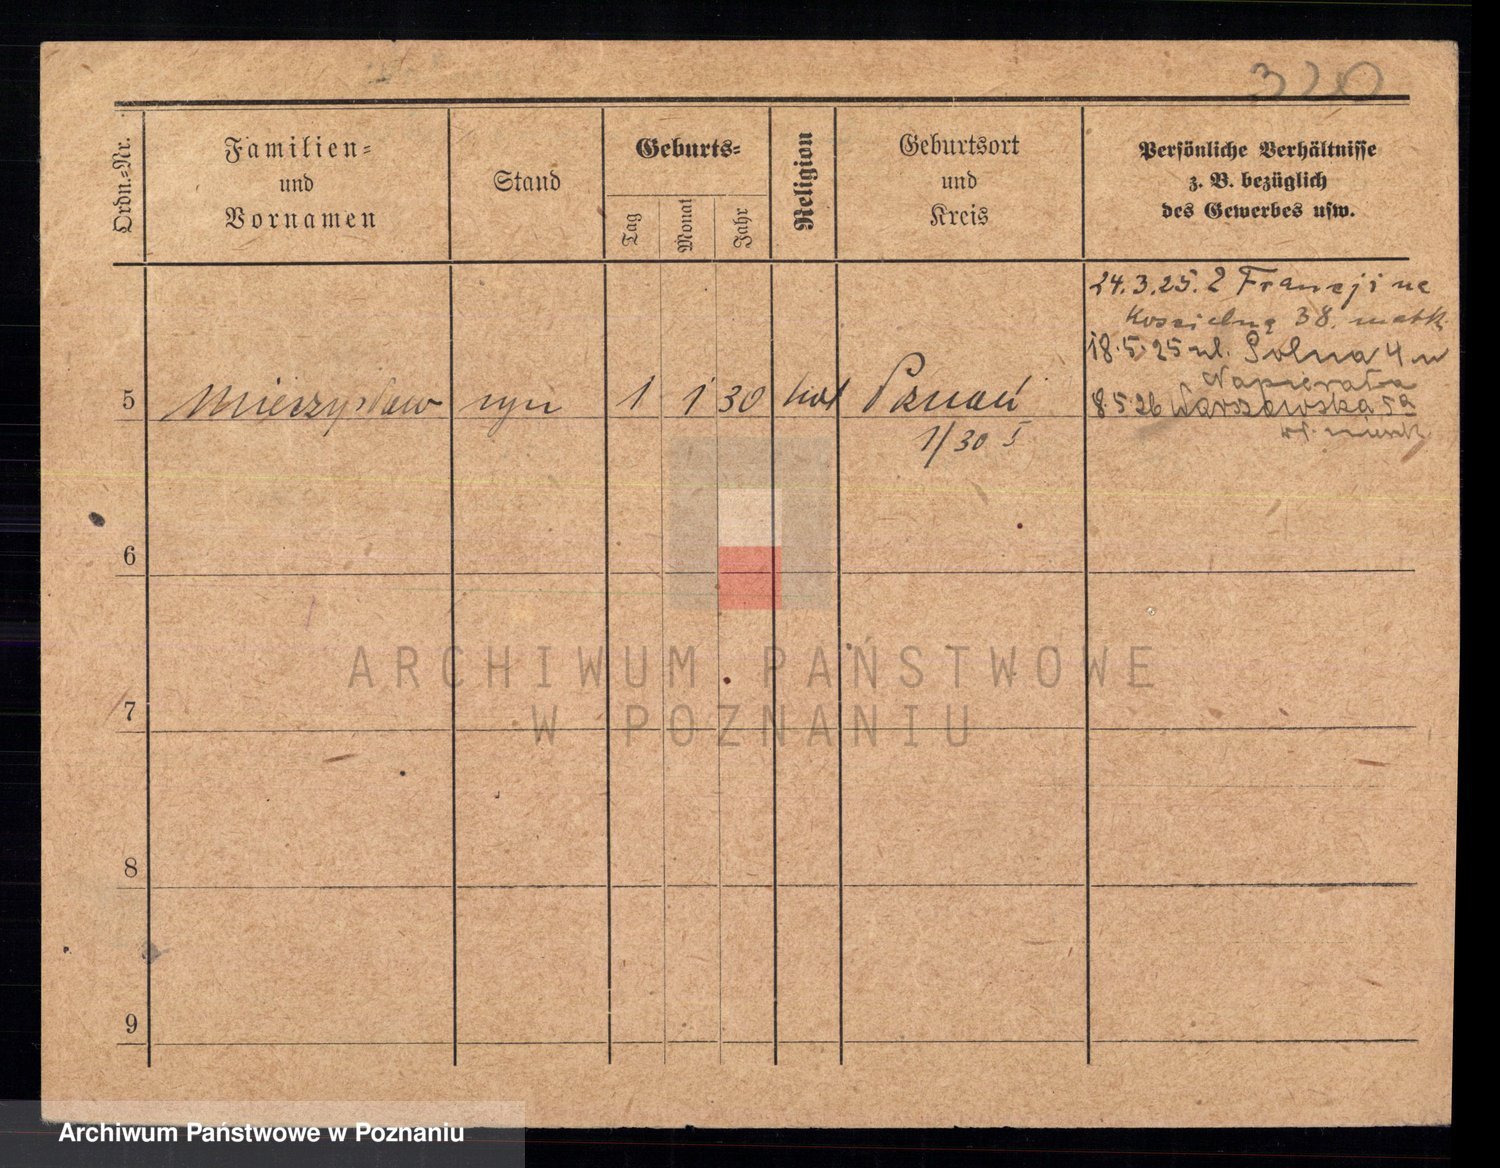 320
Ordn.-Nr.
Familien-
und
Vornamen
Stand
Geburts-
Tag
Monat
Jahr
Religion
Geburtsort
und
Kreis
Persönliche Verhältnisse
z. B. bezüglich
des Gewerbes usw.
24.3.25. Z Francji na
Kościelną 38.
18.5.25 ul. Polna 4 u
Napierała
5 Mieczysław syn 1 1 30 kat Poznań
8.5.26 Warszawska 5a
1/30 I
6
7
8
9
ARCHIWUM PAŃSTWOWE
W POZNANIU
Archiwum Państwowe w Poznaniu